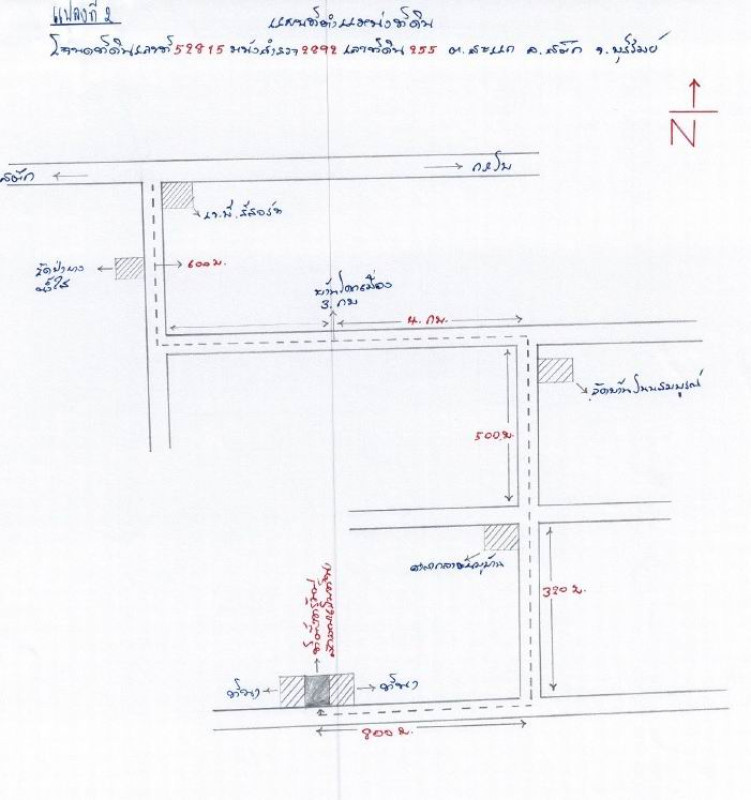 แปลงที่ 2
แผนที่ตำแหน่งที่ดิน
โฉนดที่ดินเลขที่ 52815 หน้าสำรวจ 2892 เลขที่ดิน 255 ต.สะแก อ.สตึก จ.บุรีรัมย์
N
สตึก
เจ.พี.รีสอร์ท
วัดป่ายาง
น้ำใส
600 ม.
บ้านโคกเมือง
3. กม
4. กม.
วัดบ้านโนนสมบูรณ์
500 ม.
ศาลากลางหมู่บ้าน
320 ม.
ที่นา
ที่นา
800 ม.